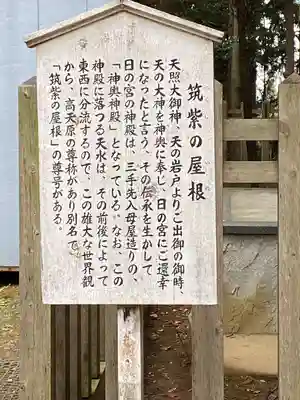 筑紫の屋根
天照大御神、天の岩戸よりご出御の御時、
天の大神を神輿に奉し、日の宮にご還幸
になったと言う、その伝承を生かして
日の宮の神殿は、三手先入母屋造りの、
「神輿神殿」となっている。なお、この
神殿に落つる天水は、その前後によって
東西に分流するので、この雄大な世界観
から、高天原の尊称があり別名で、
「筑紫の屋根」の尊号がある。